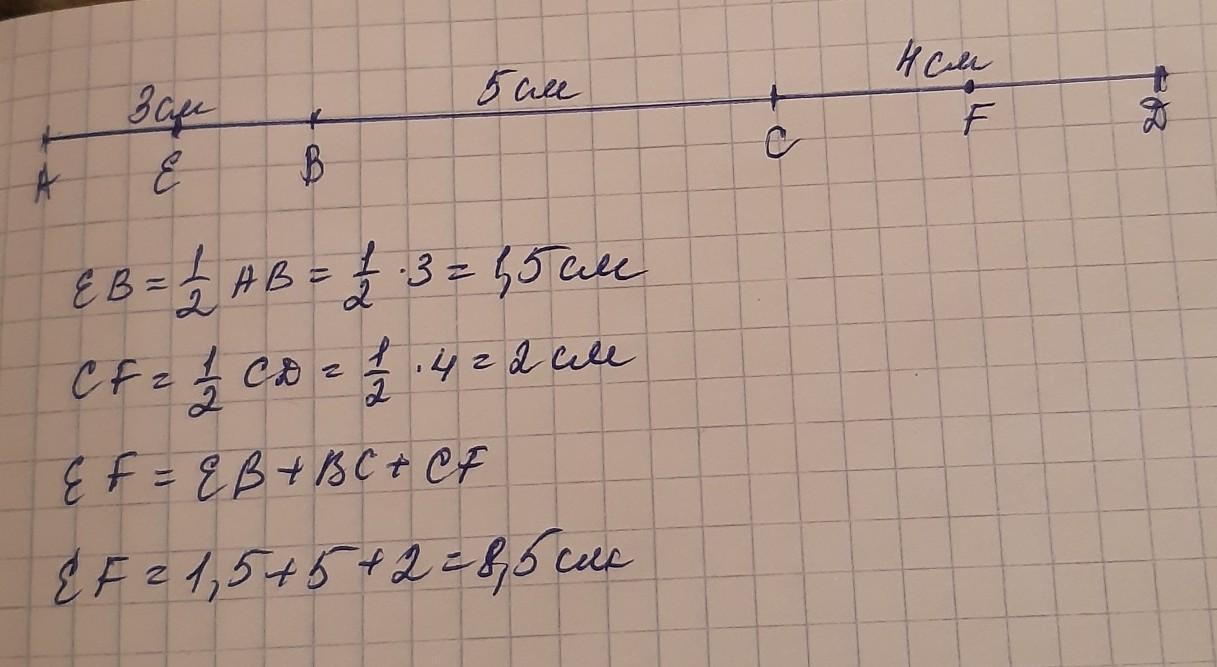 3см 5см 4см
A E B C F D
EB = 1/2 AB = 1/2 · 3 = 1,5 см
CF = 1/2 CD = 1/2 · 4 = 2 см
EF = EB + BC + CF
EF = 1,5 + 5 + 2 = 8,5 см